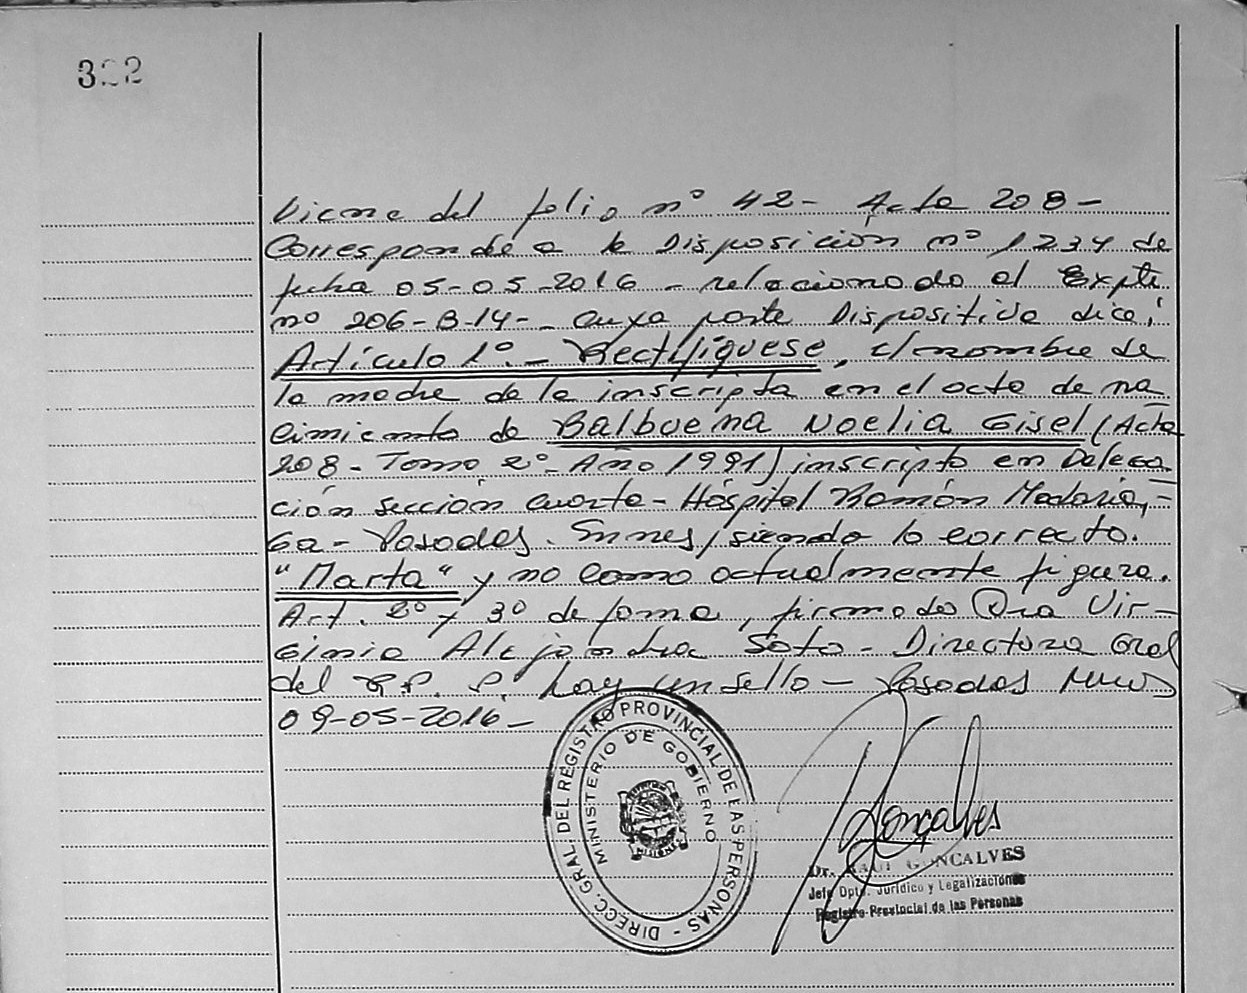 322
Viene del folio nº 42- Acta 208-
Corresponde a la Disposición nº 1234 de
fecha 05-05-2016 - relacionado al Expte
nº 206-B-14- cuya parte Dispositiva dice:
Artículo 1º.- Rectifíquese, el nombre de
la madre de la inscripta en el acta de na
cimiento de Balbuena Noelia Gisel (Acta
208- Tomo 2º- Año 1991) inscripto en Delega-
ción sección cuarta- Hospital Ramón Madaria,-
ga- Posadas. Smnes, siendo lo correcto.
"Marta" y no como actualmente figura.
Art. 2º y 3º de forma, firmado Dra Vir-
ginia Alejandra Soto- Directora Gral
del R.P. P. hay un sello- Posadas Mnes
09-05-2016-
DIRECC. GRAL DEL REGISTRO PROVINCIAL DE LAS PERSONAS -
MINISTERIO DE GOBIERNO
Gonçalves
Dr. RAUL GONCALVES
Jefe Dpto. Jurídico y Legalizaciones
Registro Provincial de las Personas